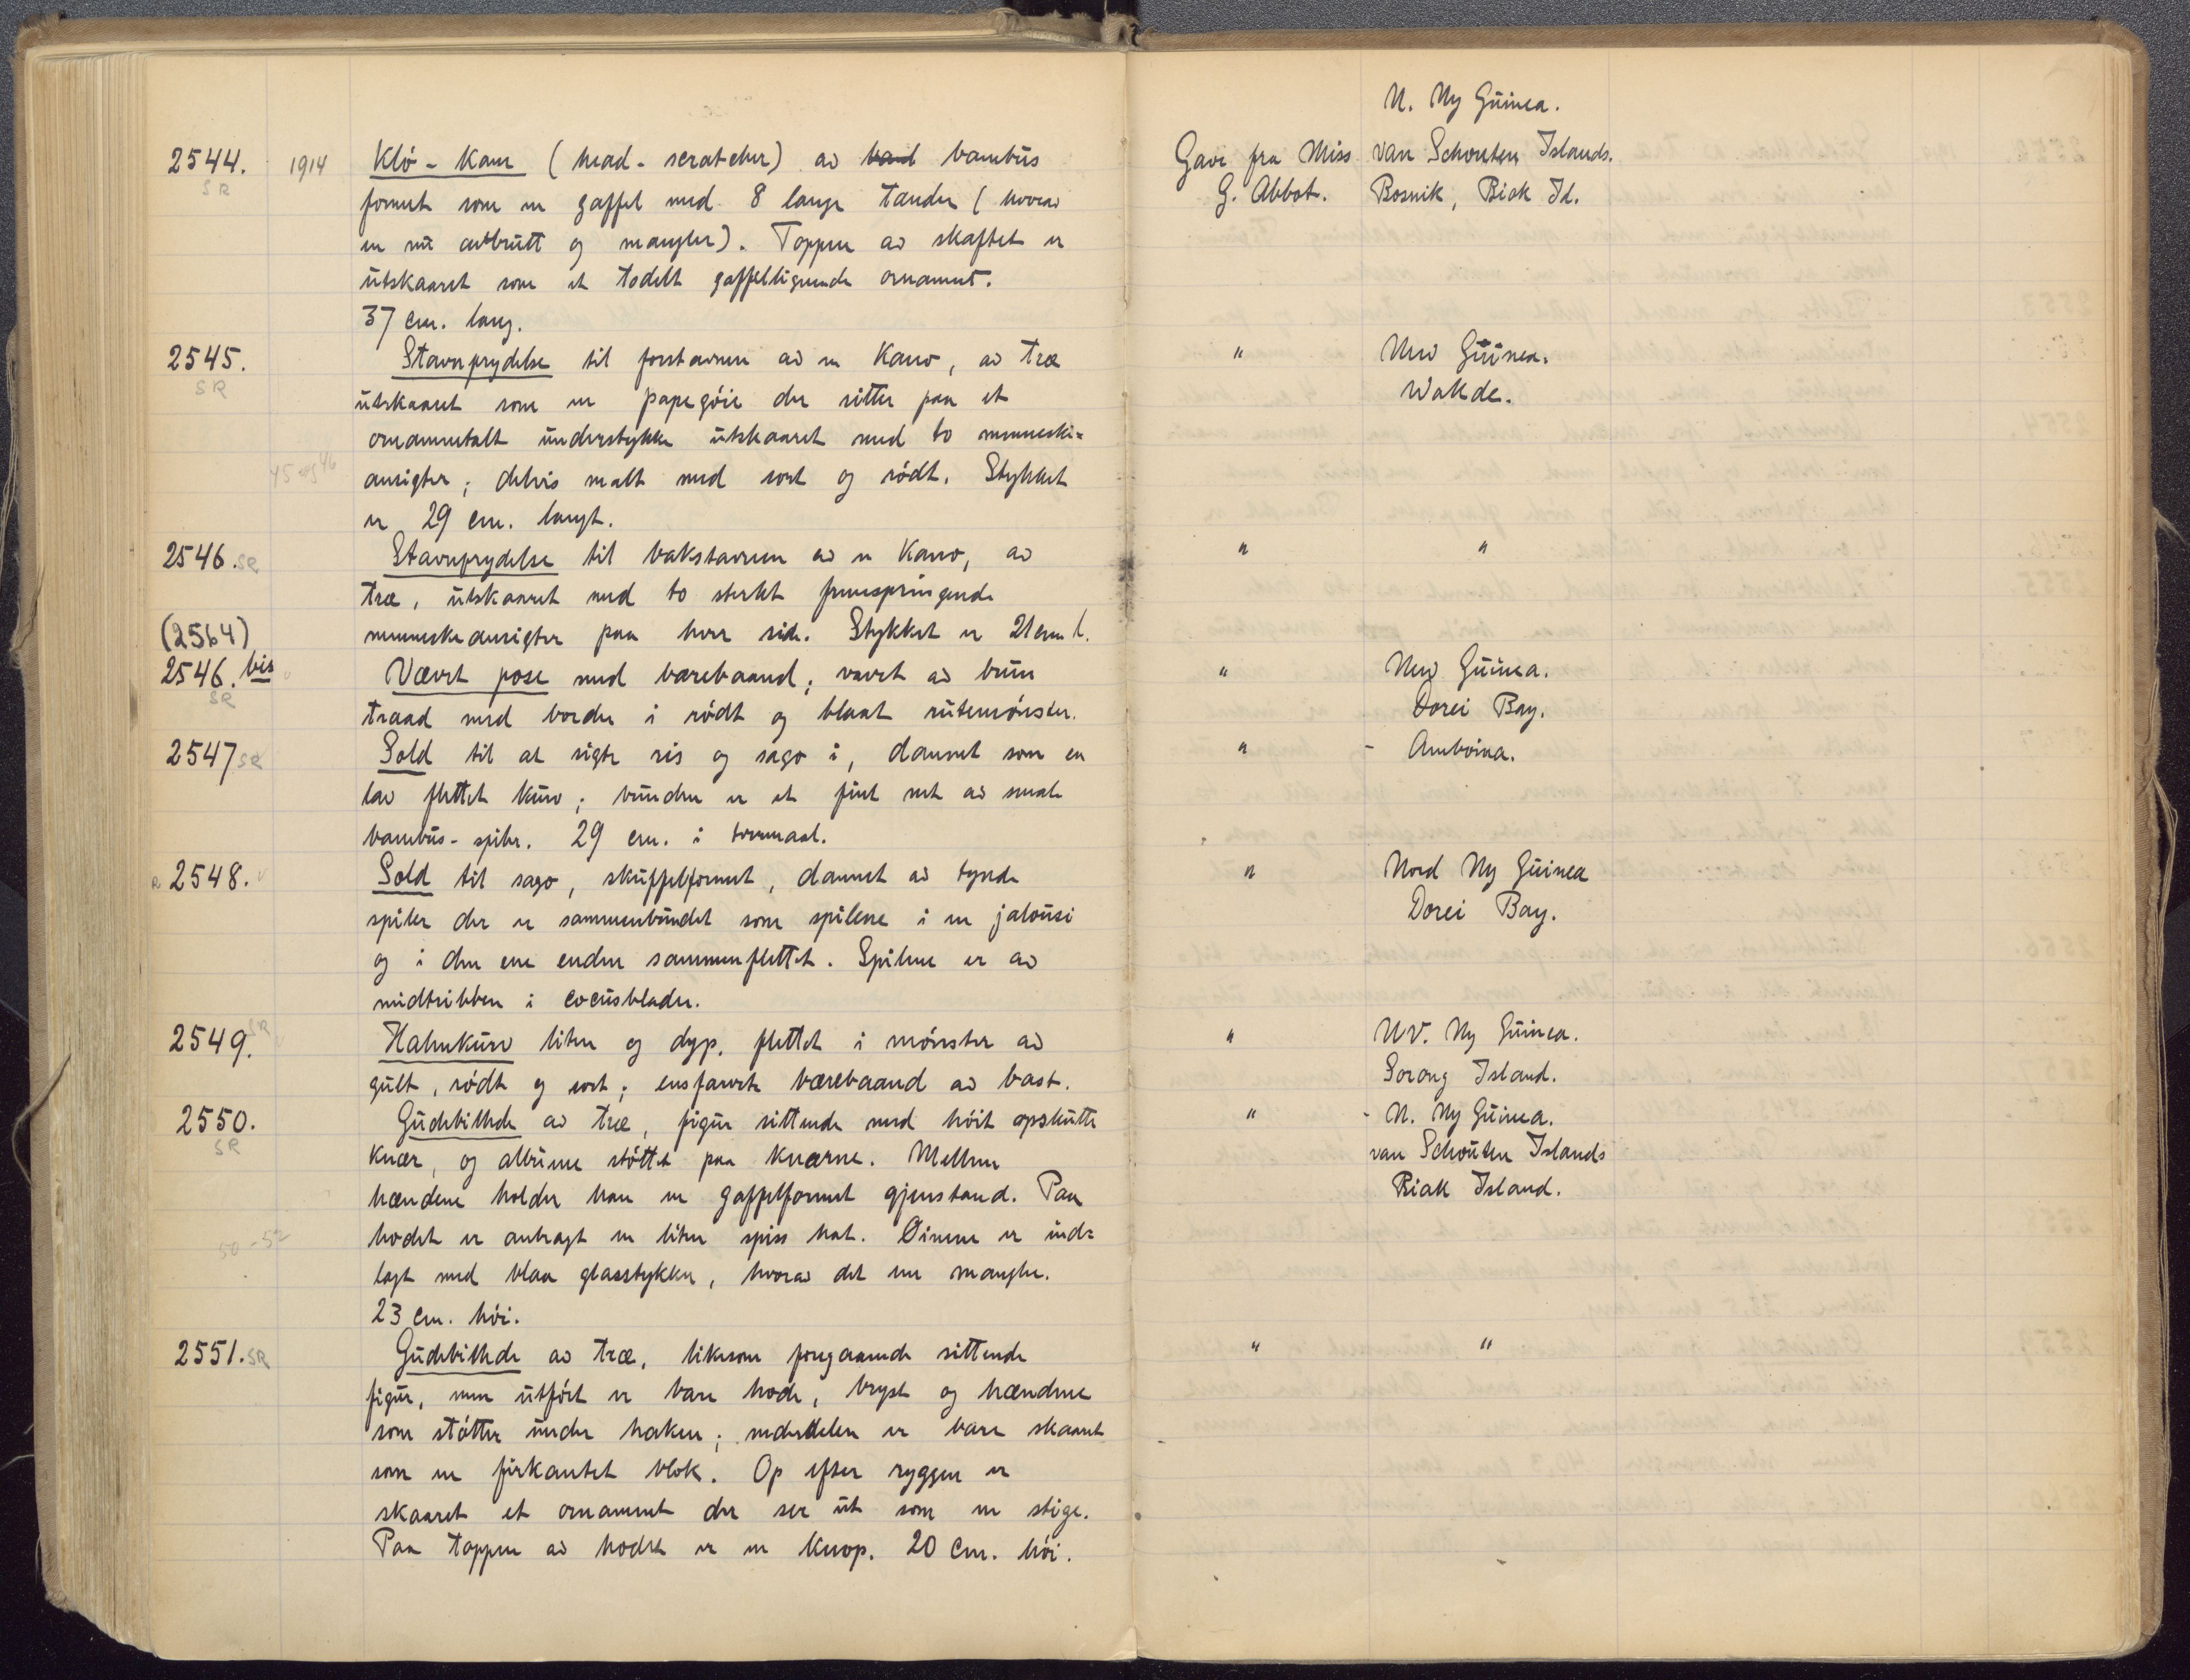 N. Ny Guinea.
2544. 1914 Klö-kam (head-scratcher) av band bambus Gave fra Miss van Schouten Islands.
SR formet som en gaffel med 8 lange tænder (hvorav G. Abbot. Bosnik, Biak Id.
en nu avbrutt og mangler). Toppen av skaftet er
utskaaret som et todelt gaffellignende ornament.
37 cm. lang.
2545. Stavnprydelse til forstavnen av en Kano, av træ " New Guinea.
SR utskaaret som en papegöie der sitter paa et Wakde.
ornamentalt understykke utskaaret med to menneske=
45 og 46 ansigter; delvis malt med sort og rödt. Stykket
er 29 cm. langt.
2546. SR Stavnprydelse til bakstavnen av en Kano, av " "
træ, utskaaret med to sterkt fremspringende
(2564) menneskeansigter paa hver side. Stykket er 21 cm l.
2546. bis Vævet pose med bærebaand; vævet av brun " New Guinea.
SR traad med border i rödt og blaat rutemönster. Dorei Bay.
2547 SR Sold til at sigte ris og sago i, dannet som en " - Amboina.
lav flettet kurv; bunden er et fint net av smale
bambus-spiler. 29 cm. i tvermaal.
R 2548. Sold til sago, skuffelformet, dannet av tynde " Nord Ny Guinea
spiler der er sammenbundet som spilene i en jalousi Dorei Bay.
og i den ene enden sammenflettet. Spilene er av
midtribben i cocusblader.
2549. SR Halmkurv liten og dyp, flettet i mönster av " NV. Ny Guinea.
gult, rödt og sort; ensfarvet bærebaand av bast. Sorong Island.
2550. Gudebillede av træ, figur sittende med höit opskutte " - N. Ny Guinea.
SR knær, og albuene stöttet paa knærne. Mellem van Schouten Islands
hændene holder han en gaffelformet gjenstand. Paa Biak Island.
50-52 hodet er anbragt en liten spiss hat. Öinene er ind=
lagt med blaa glasstykker, hvorav det ene mangler.
23 cm. höi.
2551. SR Gudebillede av træ, likesom foregaaende sittende " "
figur, men utfört er bare hode, bryst og hændene
som stötter under haken; nederdelen er bare skaaret
som en firkantet blok. Op efter ryggen er
skaaret et ornament der ser ut som en stige.
Paa toppen av hodet er en knop. 20 cm. höi.